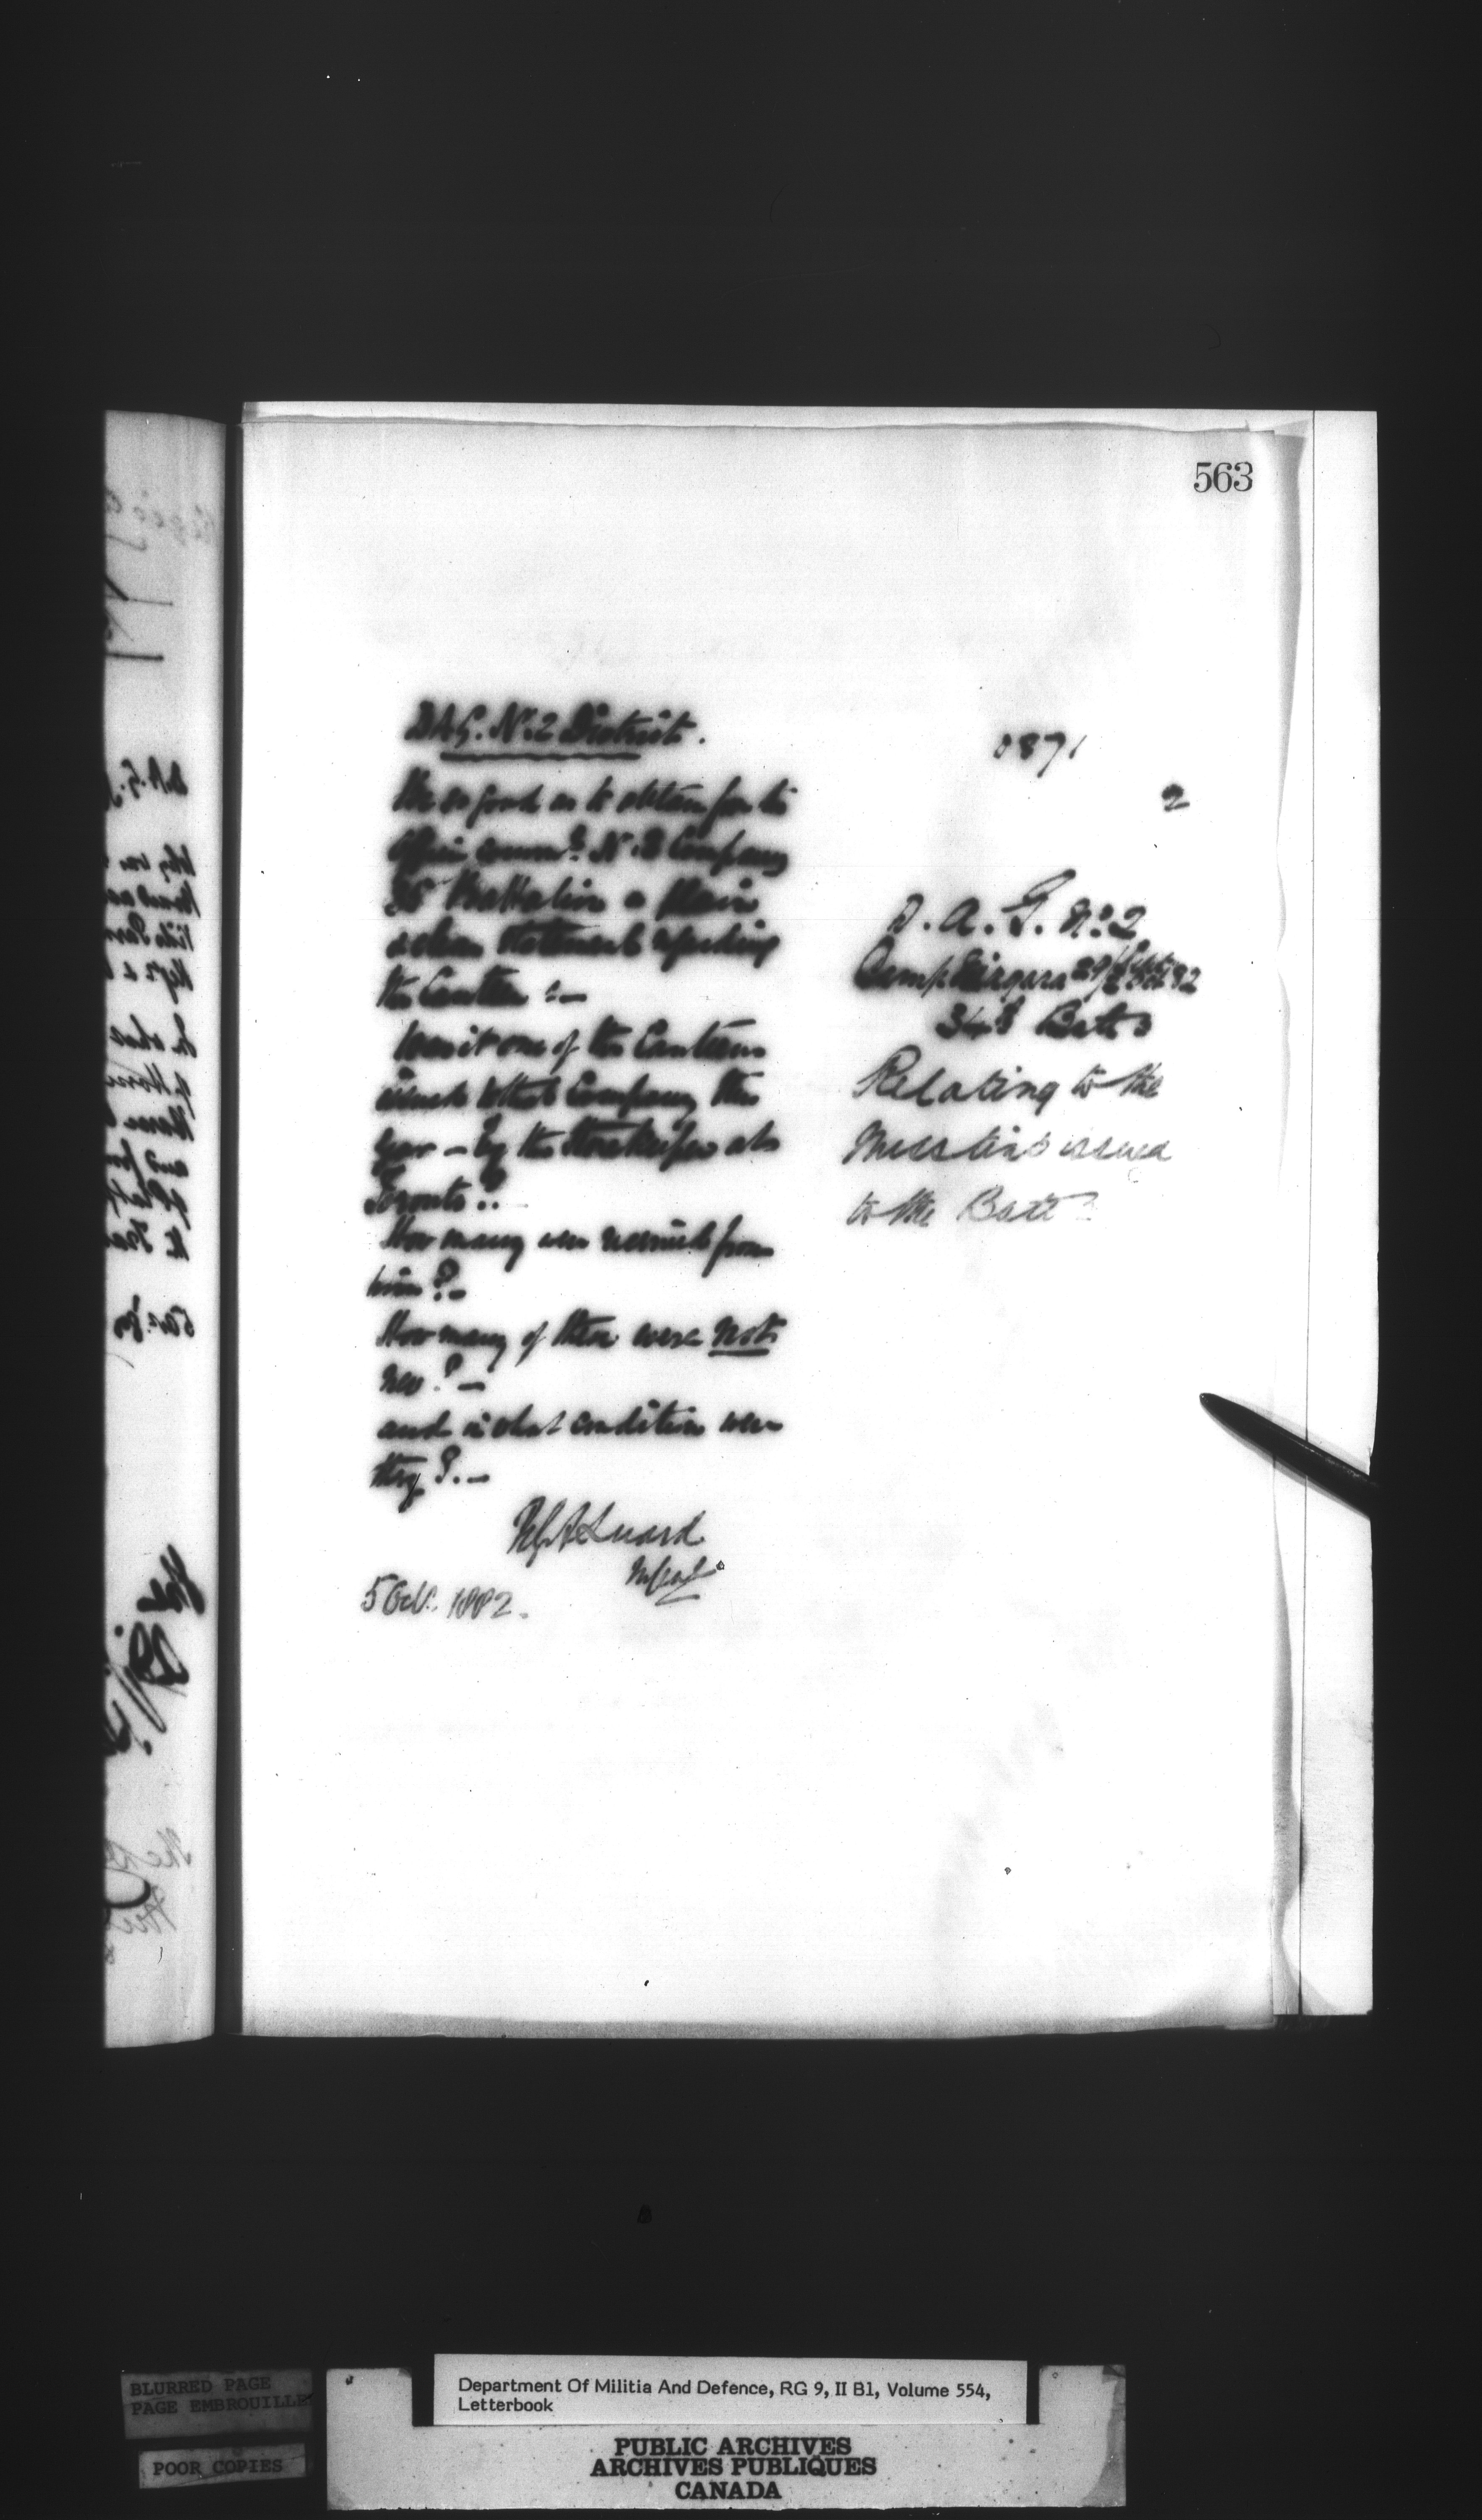 563
D.A.G. No. 2 District.
Be so good as to obtain from the
Officer comm.g No. 3 Company
Battalion a plain
& clear statement regarding
the Canteen :—
was it one of the Canteens
issued to that Company this
year – by the Storekeeper at
Toronto ?
How many were received from
him ? –
How many of these were not
new ? –
and in what condition were
they ? . –
Luard
M Genl
5 Oct. 1882.
1871
2
D. A. G. No. 2
Camp Niagara 29 Sept 82
34th Batt
Relating to the
issued
to the Batt
BLURRED PAGE
PAGE EMBROUILLE
POOR COPIES
Department Of Militia And Defence, RG 9, II B1, Volume 554,
Letterbook
PUBLIC ARCHIVES
ARCHIVES PUBLIQUES
CANADA